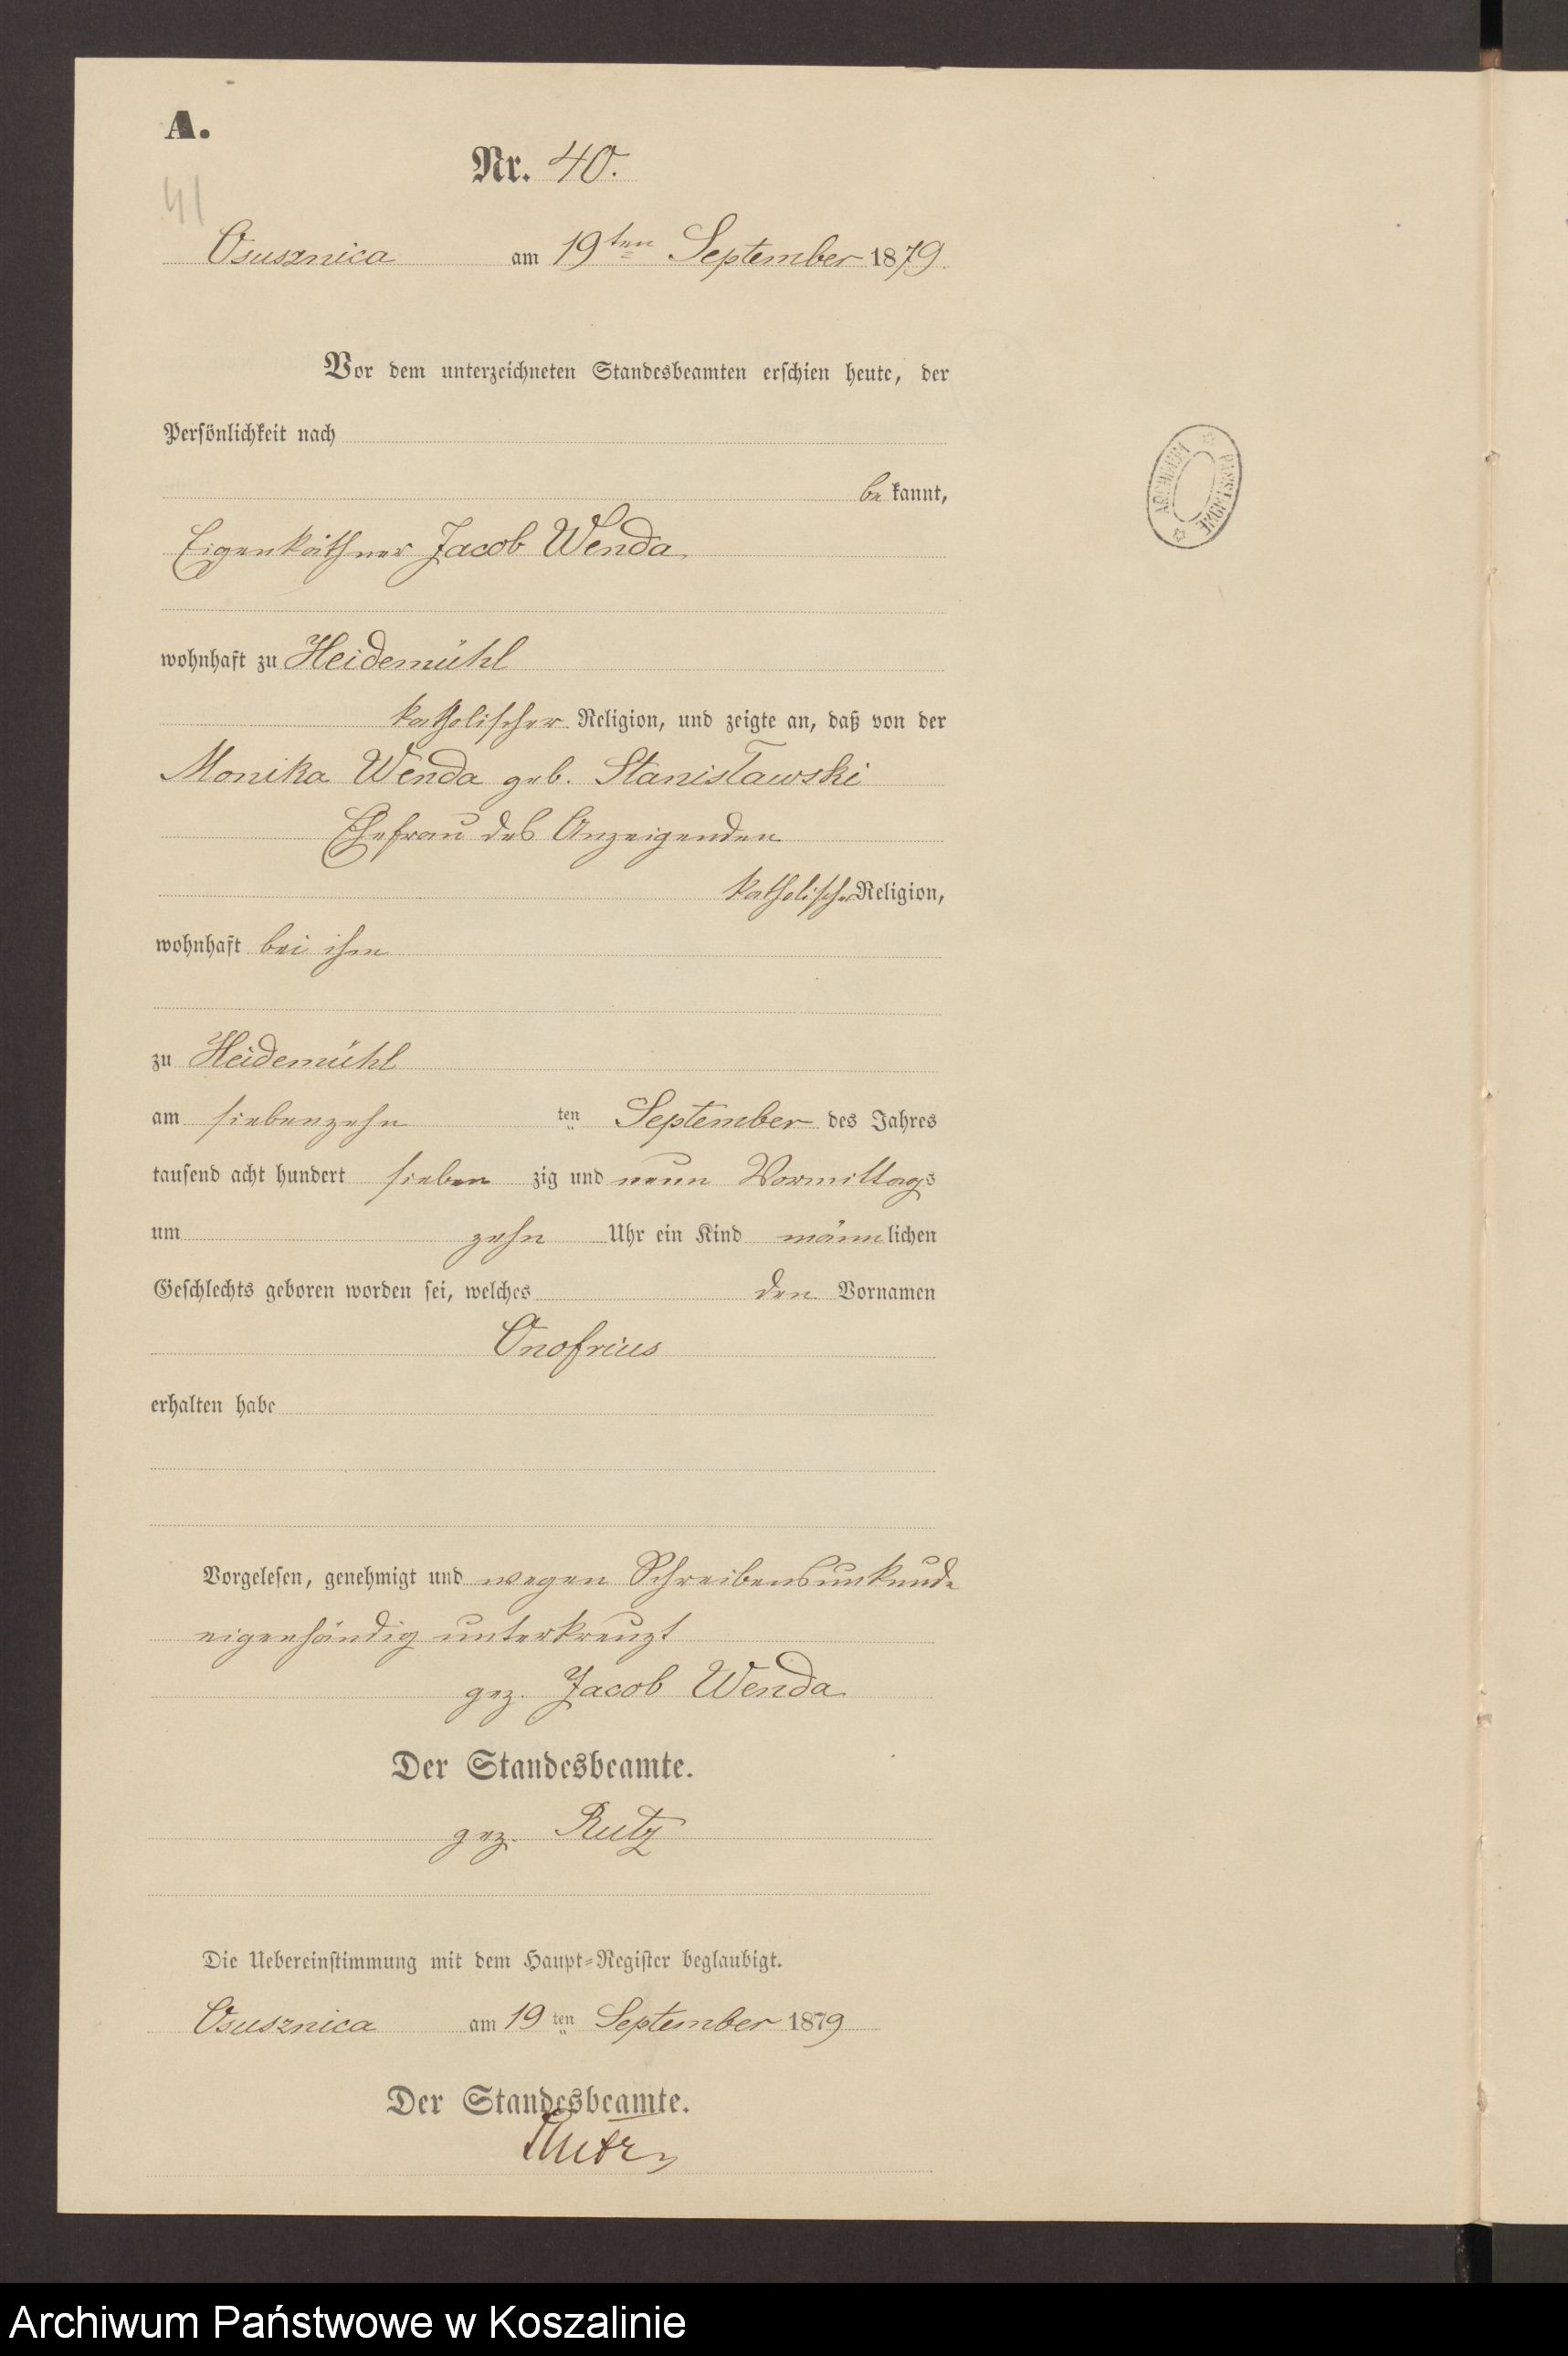 A.
Nr. 40.
41
Osusznica am 19ten September 1879.
Vor dem unterzeichneten Standesbeamten erschien heute, der
Persönlichkeit nach
bekannt,
Eigenkäthner Jacob Wenda
wohnhaft zu Heidemühl
katholischer Religion, und zeigte an, daß von der
Monika Wenda geb. Stanisławski
Ehefrau des Anzeigenden
katholischer Religion,
wohnhaft bei ihm
zu Heidemühl
am siebenzehn ten September des Jahres
tausend acht hundert sieben zig und neun Vormittags
um zehn Uhr ein Kind männlichen
Geschlechts geboren worden sei, welches den Vornamen
Onofrius
erhalten habe
Vorgelesen, genehmigt und wegen Schreibensunkunde
eigenhändig unterkreuzt
gez. Jacob Wenda
Der Standesbeamte.
gez. Rutz
Die Uebereinstimmung mit dem Haupt=Register beglaubigt.
Osusznica am 19ten September 1879
Der Standesbeamte.
Rutz
ARCHIWUM PAŃSTWOWE
Archiwum Państwowe w Koszalinie